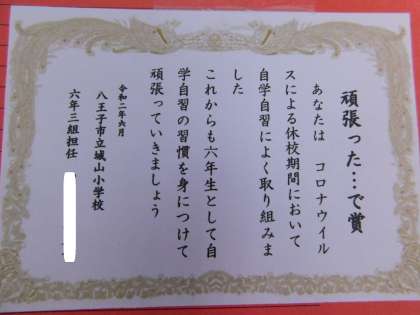 頑張った…で賞
あなたは　コロナウイル
スによる休校期間において
自学自習によく取り組みま
した
これからも六年生として自
学自習の習慣を身につけて
頑張っていきましょう
令和二年六月
八王子市立城山小学校
六年三組担任